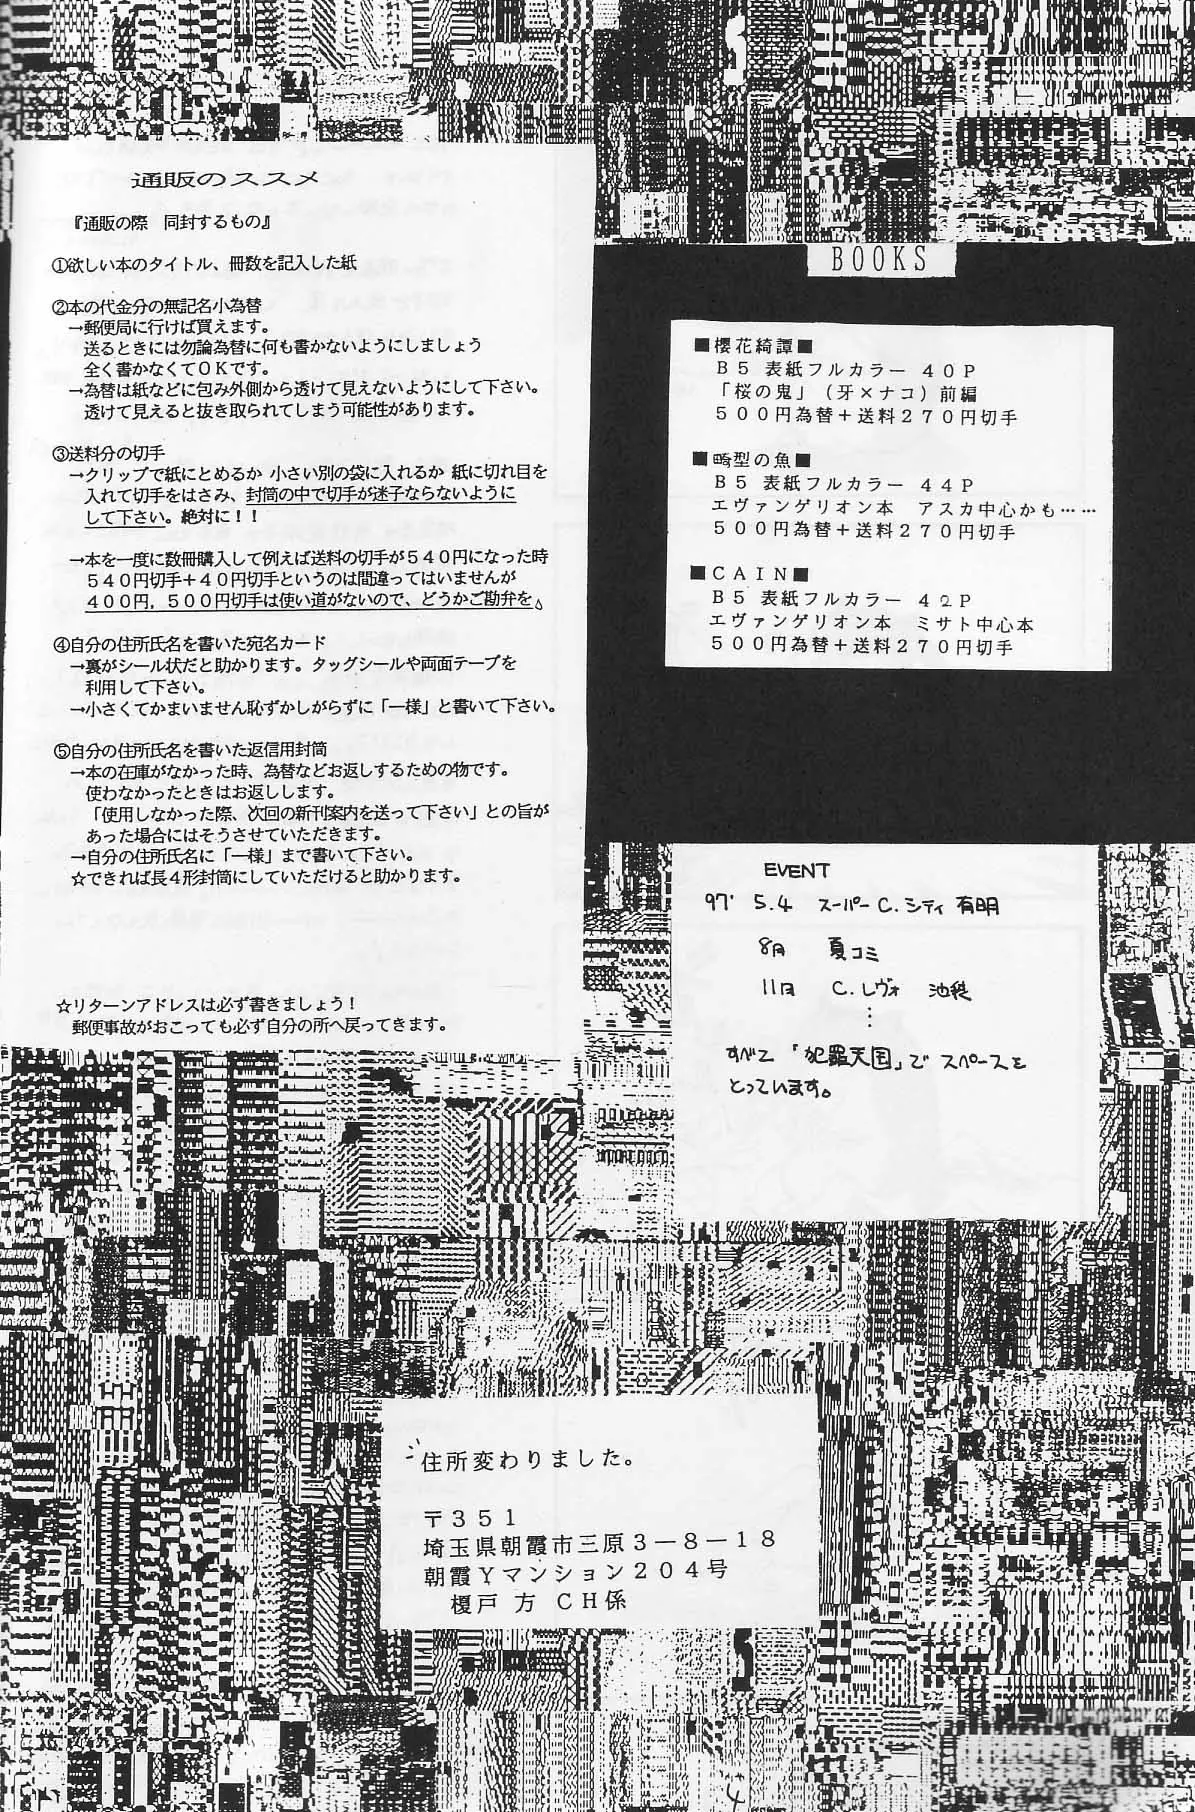 通販のススメ
『通販の際　同封するもの』
①欲しい本のタイトル、冊数を記入した紙
②本の代金分の無記名小為替
→郵便局に行けば買えます。
送るときには勿論為替に何も書かないようにしましょう
全く書かなくてOKです。
→為替は紙などに包み外側から透けて見えないようにして下さい。
透けて見えると抜き取られてしまう可能性があります。
③送料分の切手
→クリップで紙にとめるか 小さい別の袋に入れるか 紙に切れ目を
入れて切手をはさみ、封筒の中で切手が迷子ならないように
して下さい。絶対に！！
→本を一度に数冊購入して例えば送料の切手が５４０円になった時
５４０円切手＋４０円切手というのは間違ってはいませんが
４００円，５００円切手は使い道がないので、どうかご勘弁を。
④自分の住所氏名を書いた宛名カード
→裏がシール状だと助かります。タッグシールや両面テープを
利用して下さい。
→小さくてかまいません恥ずかしがらずに「一様」と書いて下さい。
⑤自分の住所氏名を書いた返信用封筒
→本の在庫がなかった時、為替などお返しするための物です。
使わなかったときはお返しします。
「使用しなかった際、次回の新刊案内を送って下さい」との旨が
あった場合にはそうさせていただきます。
→自分の住所氏名に「一様」まで書いて下さい。
☆できれば長４形封筒にしていただけると助かります。
☆リターンアドレスは必ず書きましょう！
郵便事故がおこっても必ず自分の所へ戻ってきます。
BOOKS
■櫻花綺譚■
Ｂ５ 表紙フルカラー ４０Ｐ
「桜の鬼」（牙×ナコ）前編
５００円為替＋送料２７０円切手
■畸型の魚■
Ｂ５ 表紙フルカラー ４４Ｐ
エヴァンゲリオン本　アスカ中心かも……
５００円為替＋送料２７０円切手
■ＣＡＩＮ■
Ｂ５ 表紙フルカラー ４２Ｐ
エヴァンゲリオン本　ミサト中心本
５００円為替＋送料２７０円切手
EVENT
97' 5.4 スーパーC.シティ 有明
8月 夏コミ
11月 C.レヴォ 池袋
すべて「犯羅天国」で スペースを
とっています。
住所変わりました。
〒３５１
埼玉県朝霞市三原３－８－１８
朝霞Ｙマンション２０４号
榎戸 方 ＣＨ係